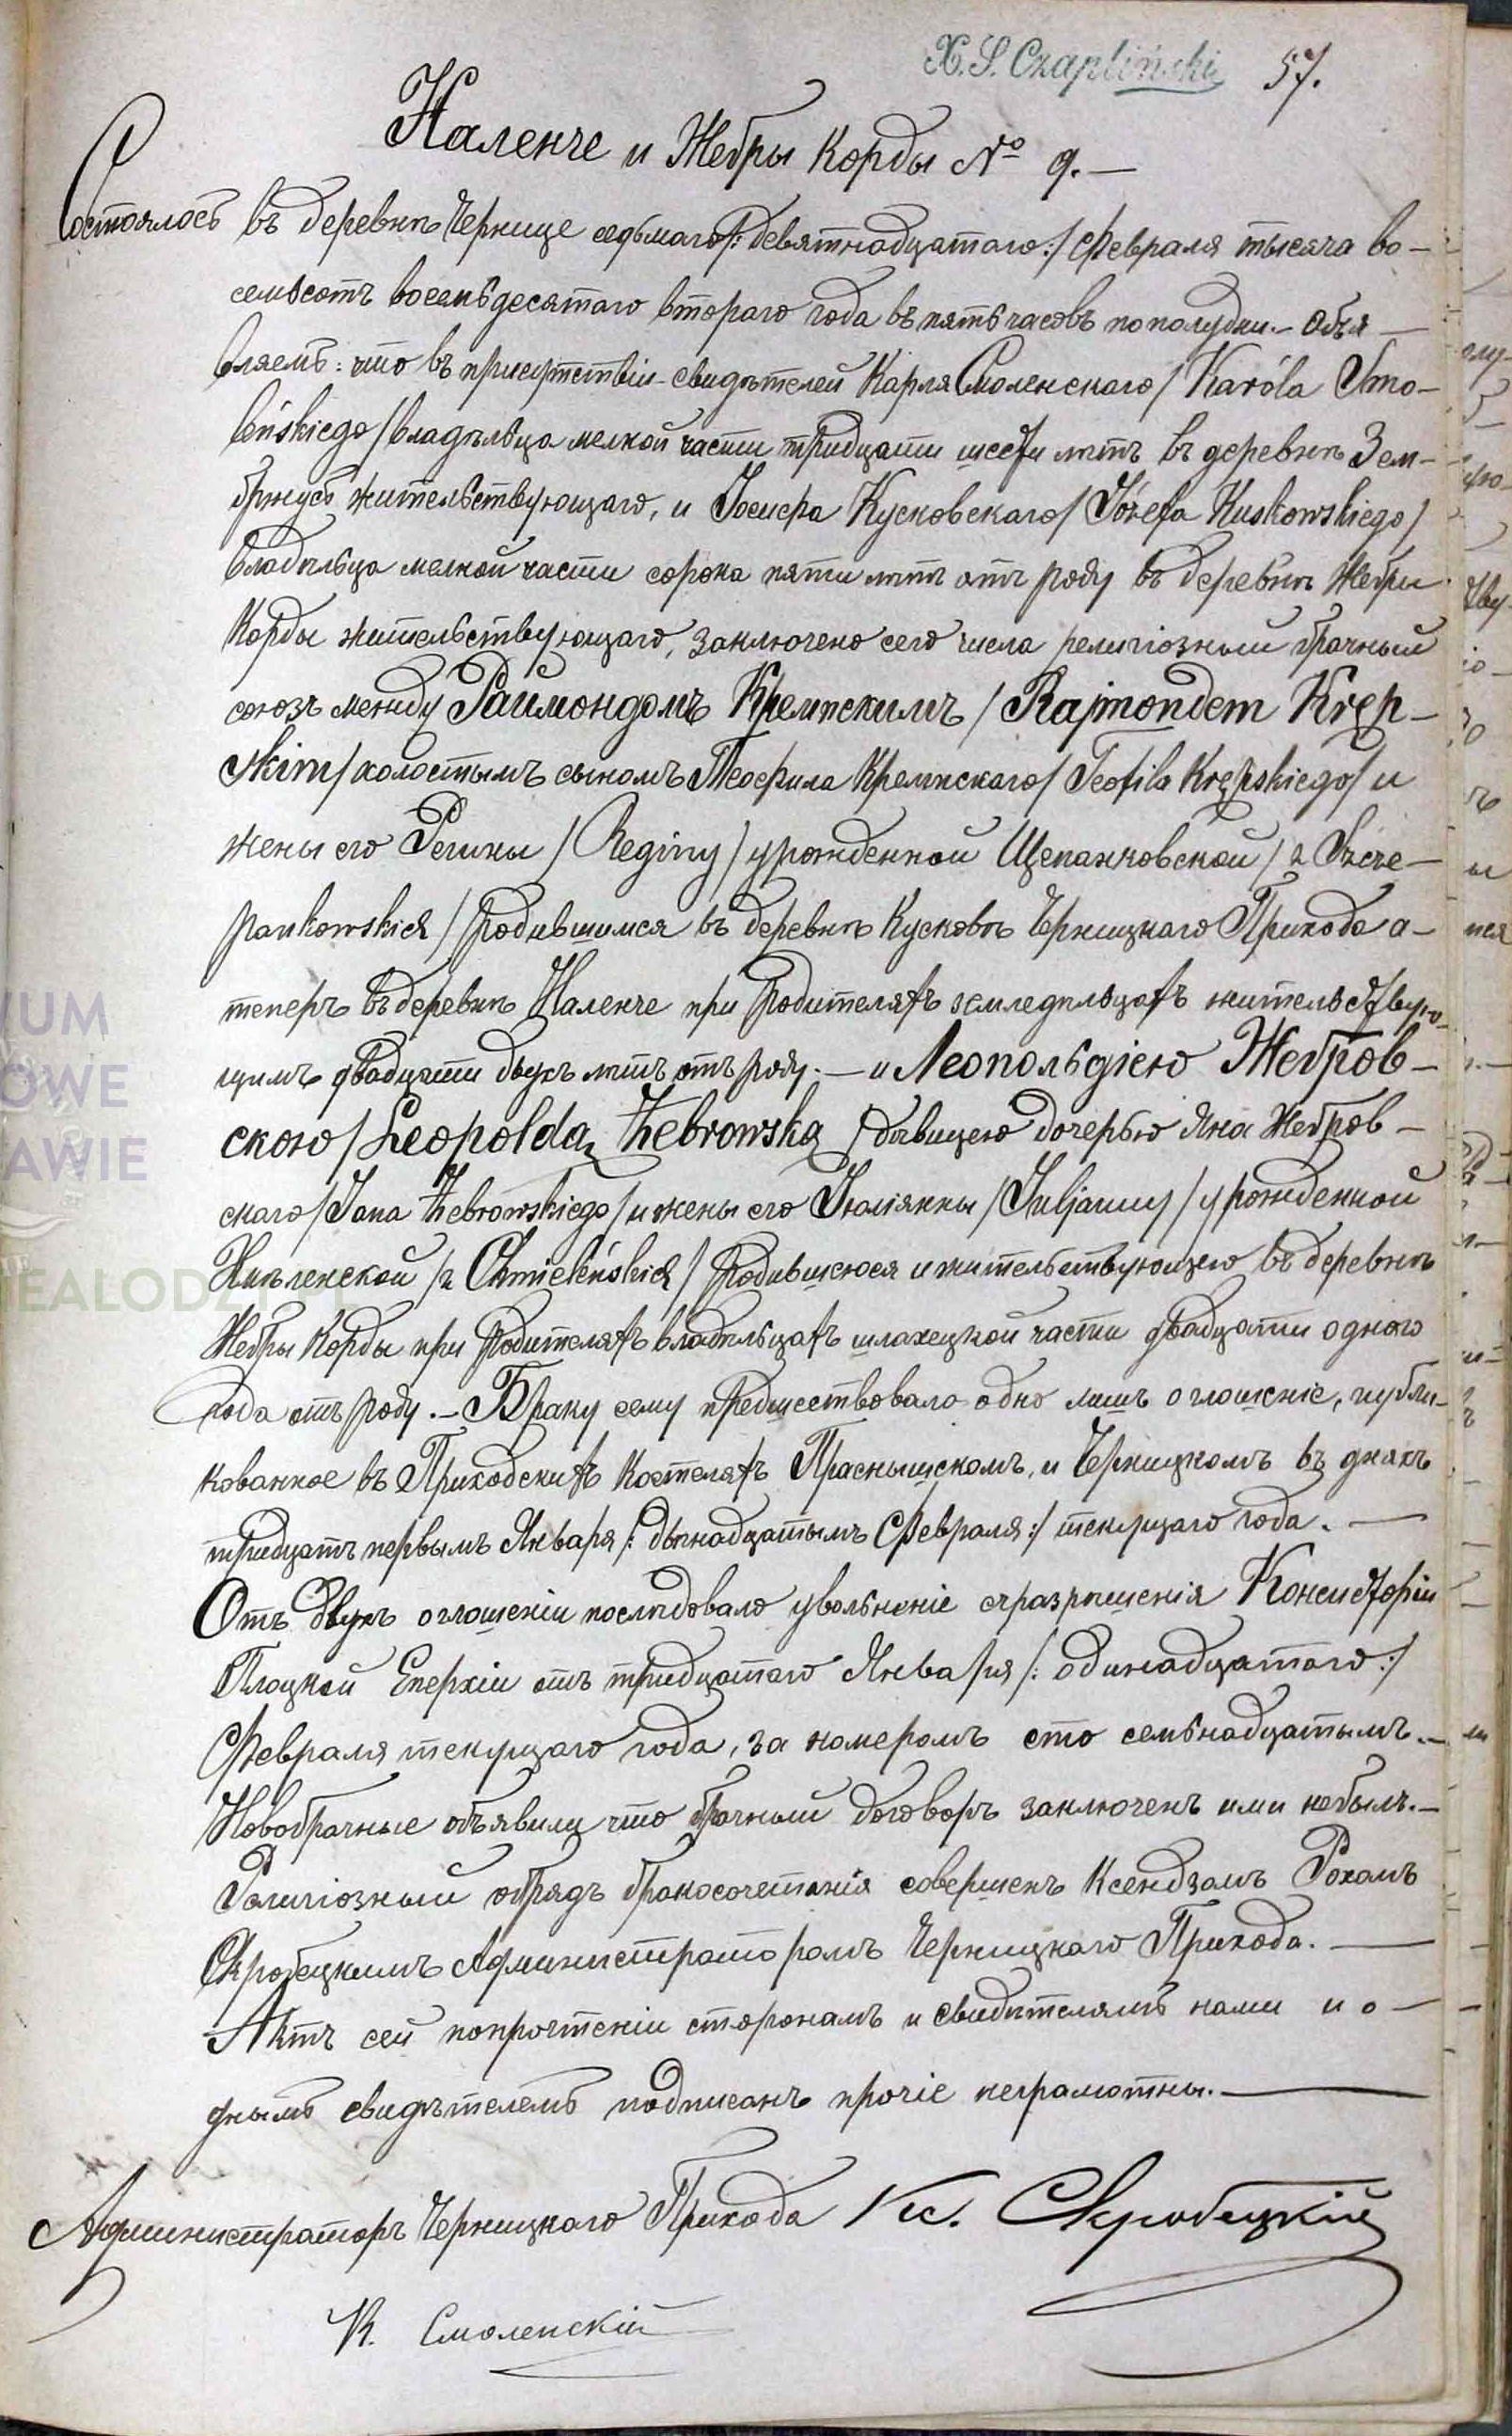 X. S. Czapliński 57.
Наленче и Жебры Корды № 9.—
Состоялось въ деревнѣ Чернице седьмаго /: девятнадцатаго :/ Февраля тысяча во-
семьсотъ восемьдесятаго втораго года въ пять часовъ пополудни.— Объя-
вляемъ: что въ присутствіи свидѣтелей Карля Смоленскаго / Karóla Smo-
leńskiego / владѣльца мелкой части тридцати шести лѣтъ въ деревнѣ Зем-
бржусъ жительствующаго, и Іосифа Кусковскаго / Józefa Kuskowskiego /
владѣльца мелкой части сорока пяти лѣтъ отъ роду въ деревнѣ Жебры
Корды жительствующаго, заключено сего числа религіозный брачный
союзъ между Раймондомъ Кремпскимъ / Rajmondem Kręp-
skim / холостымъ сыномъ Теофила Кремпскаго / Teofila Krępskiego / и
жены его Регины / Reginy / урожденной Щепанковской / z Szcze-
pankowskich / родившимся въ деревнѣ Кусковѣ Черницкаго Прихода а-
теперъ въ деревнѣ Наленче при родителяхъ земледѣльцахъ жительствую-
щимъ двадцати двухъ лѣтъ отъ роду.— и Леопольдіею Жебров-
скою / Leopoldą Żebrowską / дѣвицею дочерью Яна Жебров-
скаго / Jana Żebrowskiego / и жены его Юліянны / Juljanny / урожденной
Хмѣленской / z Chmieleńskich / родившеюся и жительствующею въ деревнѣ
Жебры Корды при родителяхъ владѣльцахъ шляхецкой части двадцати одного
года отъ роду.— Браку сему предшествовало одно лишъ оглошеніе, публи-
кованное въ Приходскихъ Костеляхъ Праснышскомъ, и Черницкомъ въ дняхъ
тридцать первымъ Января /: двѣнадцатымъ Февраля :/ текущаго года.—
Отъ двухъ оглошеніи послѣдовало увольненіе съ разрѣшенія Консисторіи
Плоцкой Епархіи отъ тридцатаго Января /: одинадцатаго :/
Февраля текущаго года, за номеромъ сто семьнадцатымъ.—
Новобрачные объявили что брачный договоръ заключенъ ими небылъ.—
Религіозный обрядъ бракосочетанія совершенъ Ксендзомъ Рохомъ
Скробецкимъ Администраторомъ Черницкаго Прихода.—
Актъ сей попрочтеніи сторонамъ и свидѣтелямъ нами и о-
днымъ свидѣтелемъ подписанъ прочіе неграмотны.—
Администраторъ Черницкаго Прихода Кс. Скробецкій
К. Смоленскій